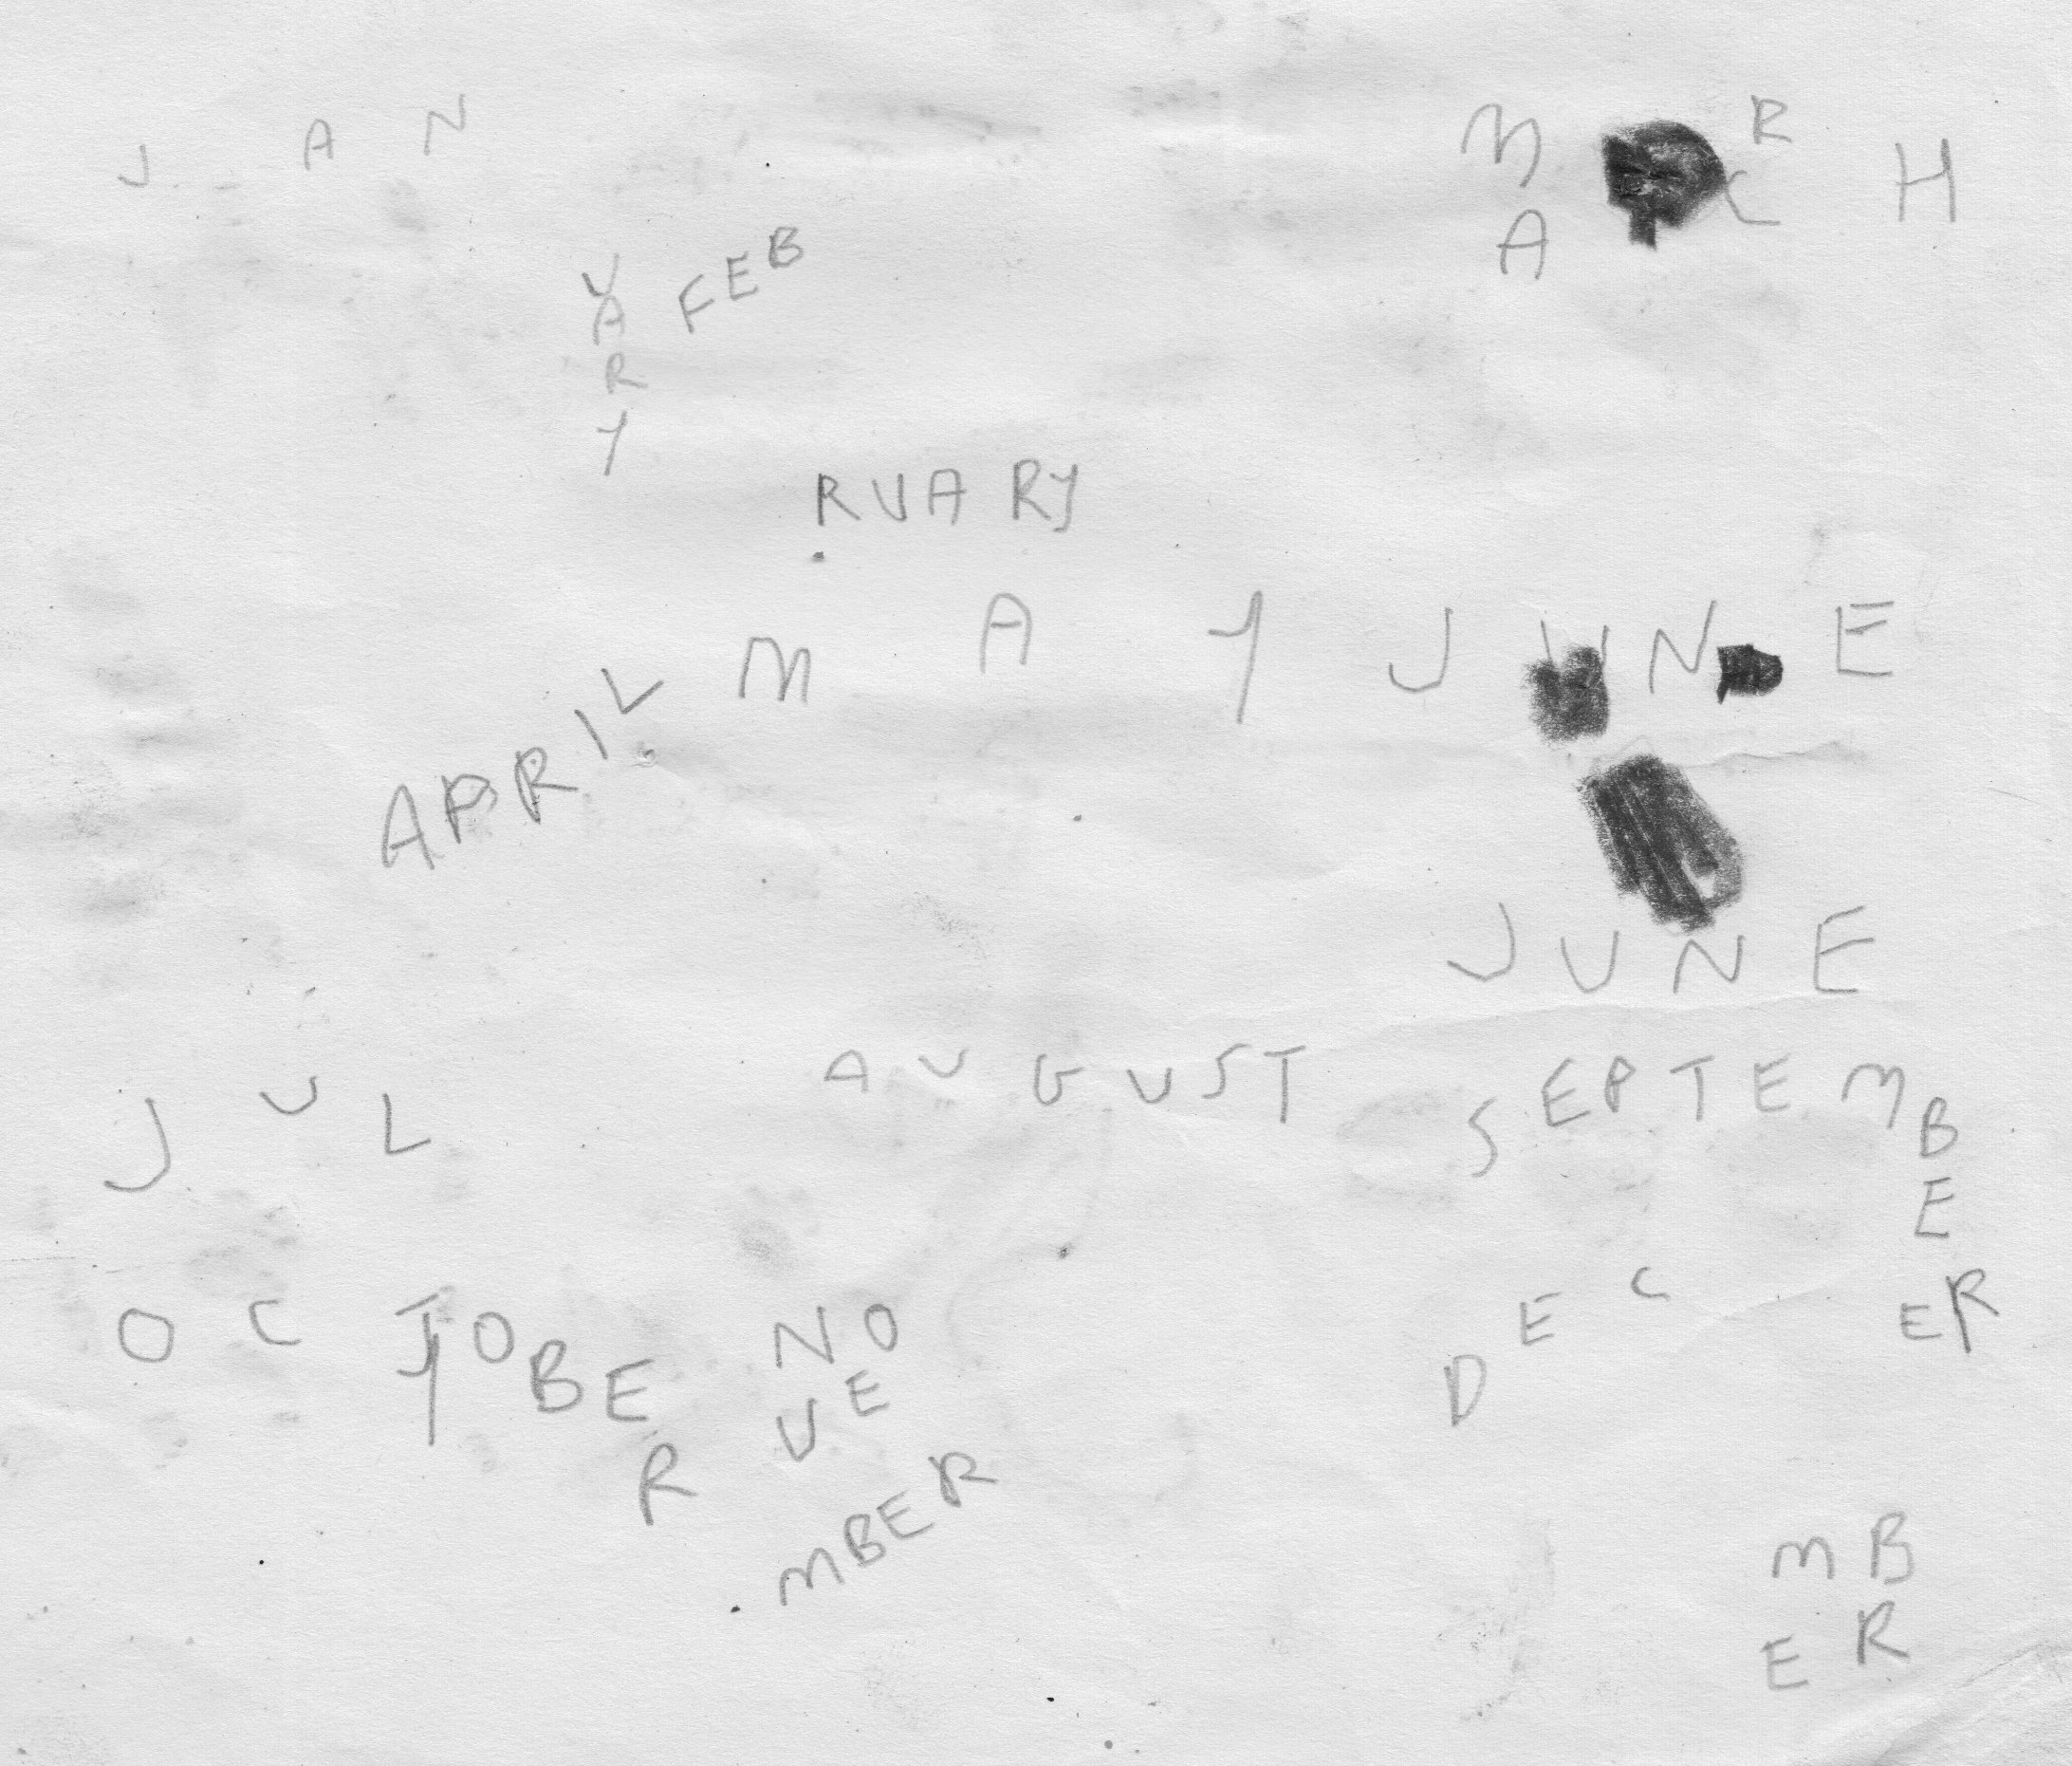 JAN
UARY
FEB
RUARY
MARCH
APRIL
MAY
JUNE
JUNE
JULY
AUGUST
SEPTEMBE
R
OCTOBE
R
NO
VE
MBER
DEC
E
MB
ER